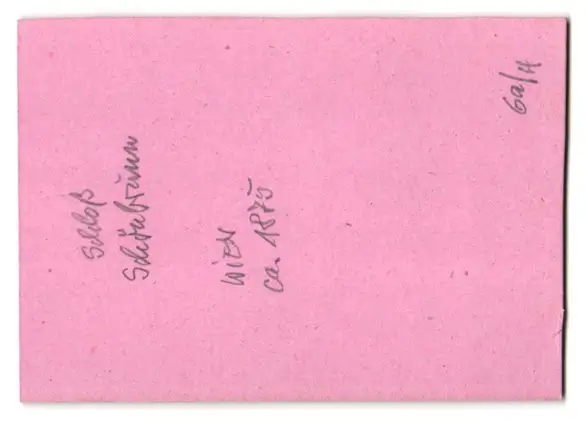 Schloß
Schönbrunn
WIEN
ca. 1875
6a/H